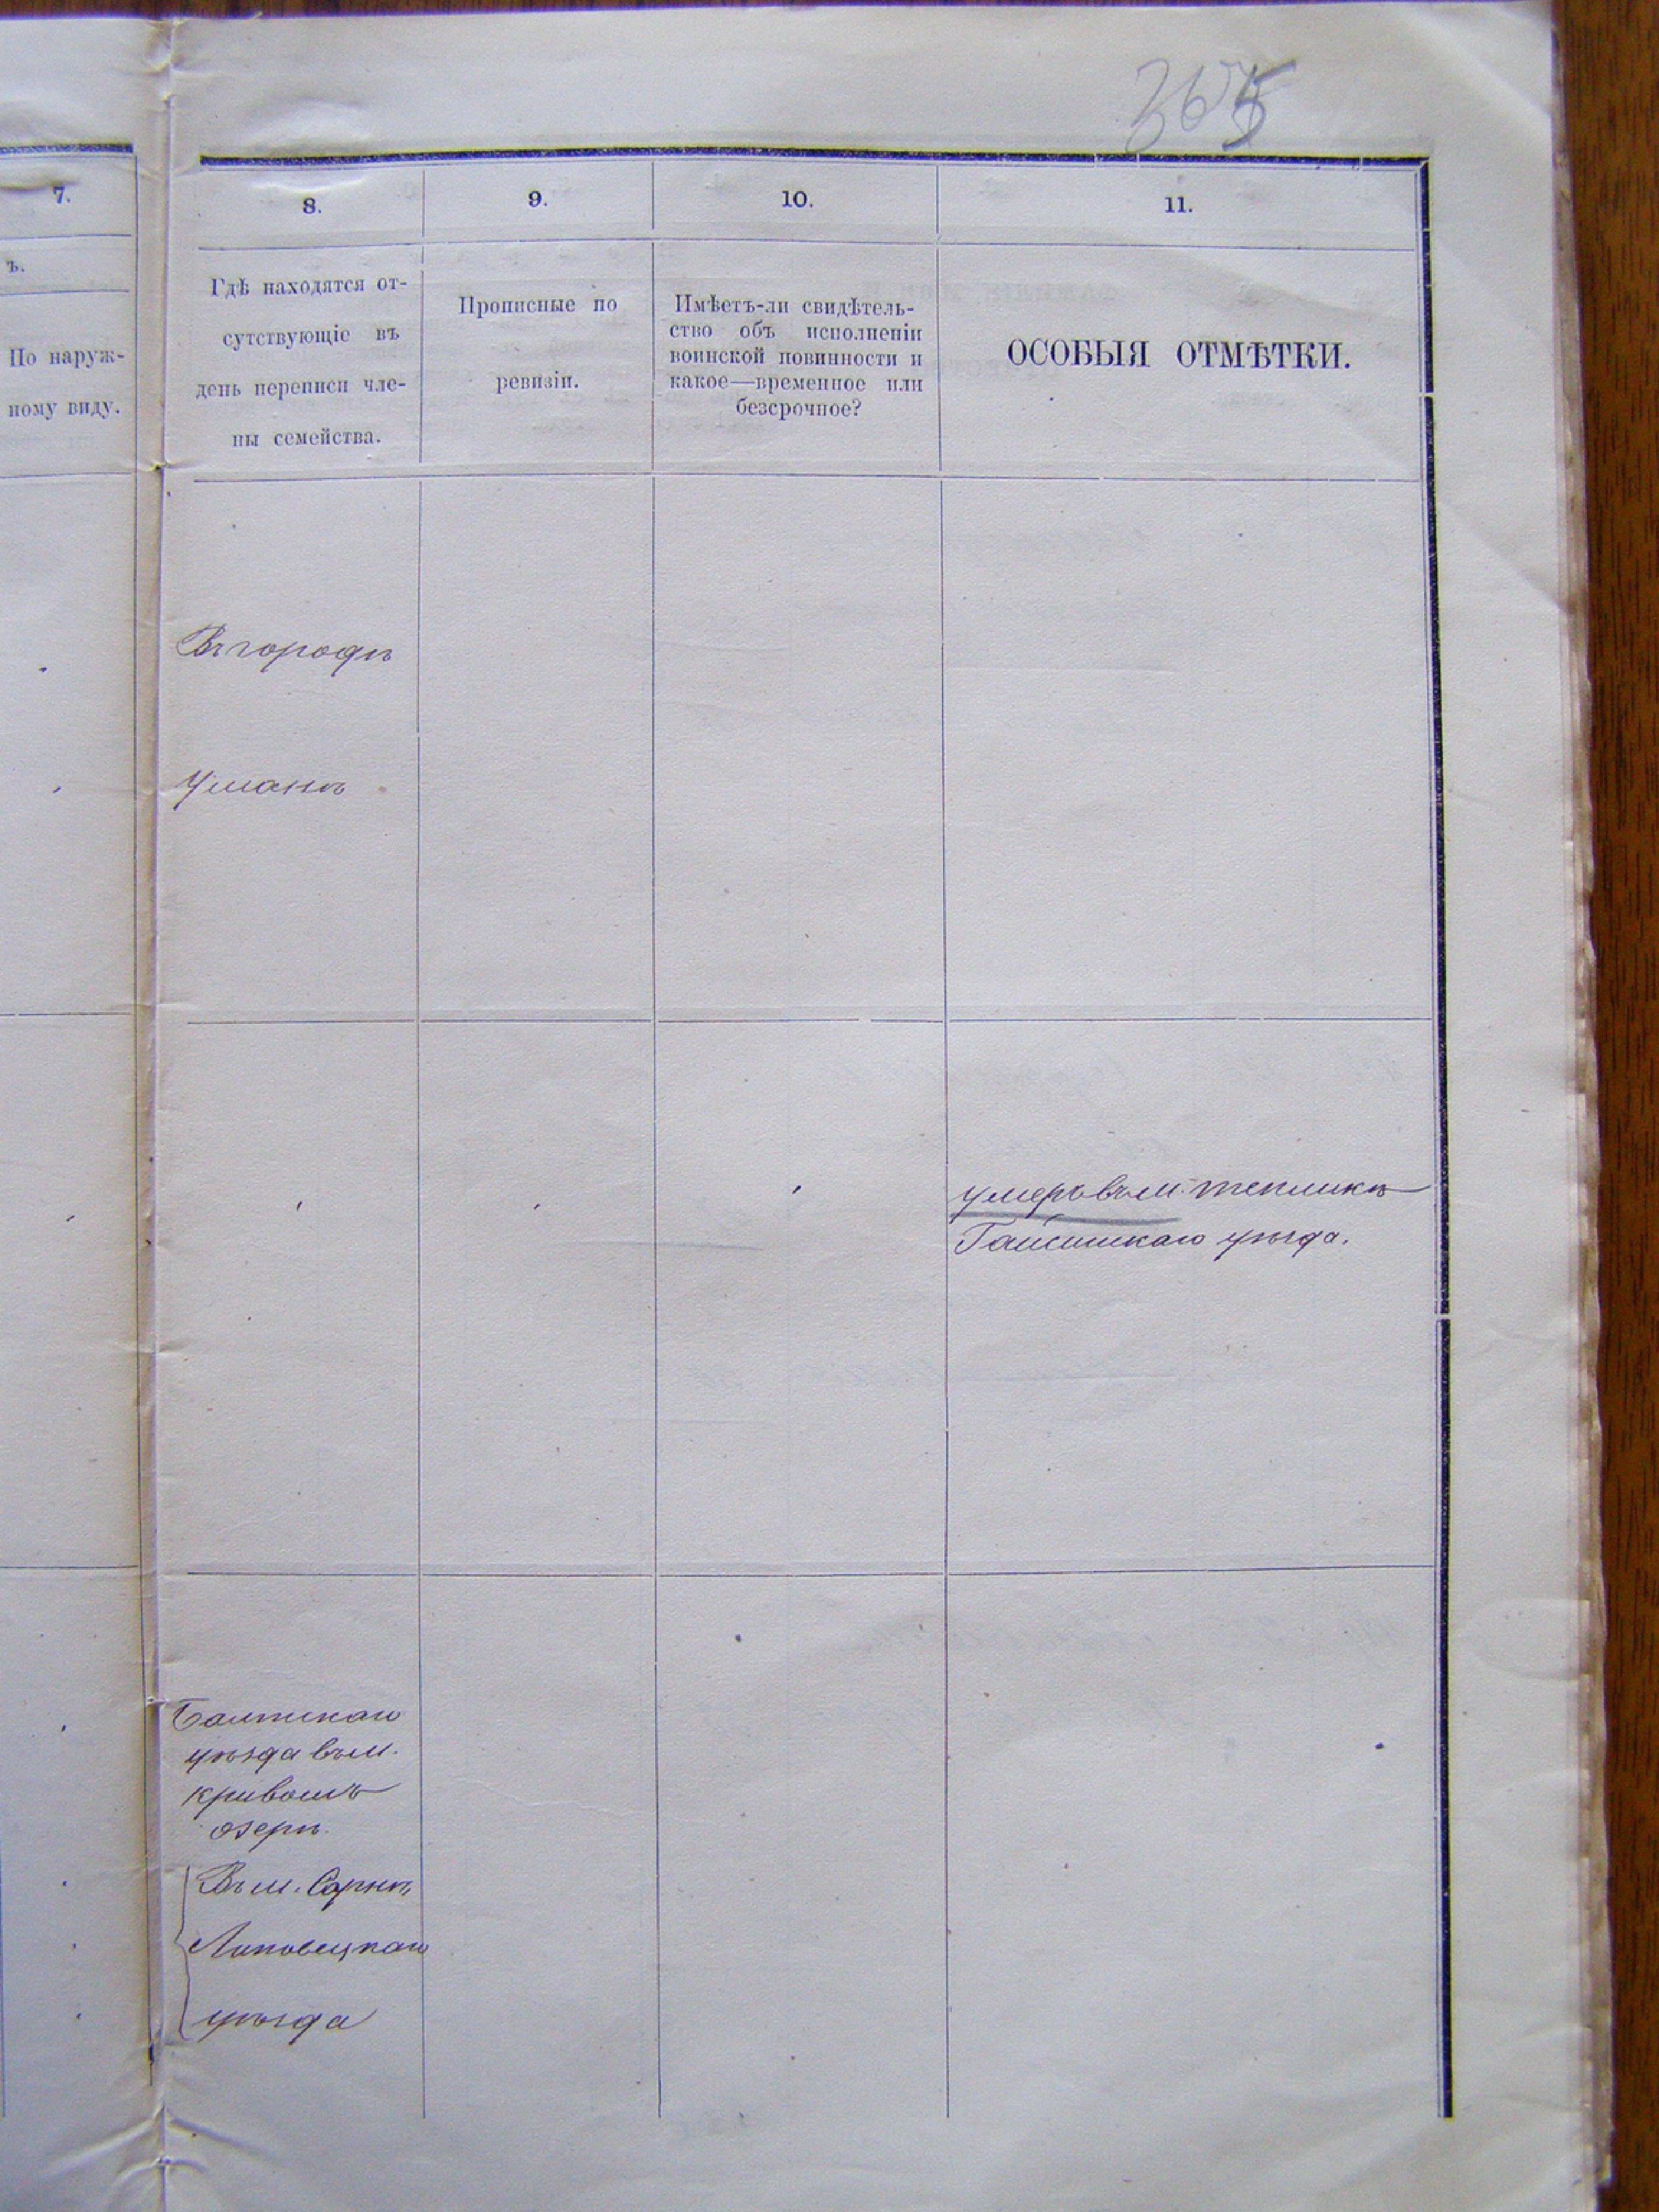 365
7.
8.
9.
10.
11.
ъ.
По наруж-
ному виду.
Гдѣ находятся от-
сутствующіе въ
день переписи чле-
ны семейства.
Прописные по
ревизіи.
Имѣетъ-ли свидѣтель-
ство объ исполненіи
воинской повинности и
какое—временное или
безсрочное?
ОСОБЫЯ ОТМѢТКИ.
Въ городѣ
Уманѣ
умеръ въ м. Тепликѣ
Гайсинскаго уѣзда.
Балтскаго
уѣзда въ м.
кривомъ
озерѣ.
Въ м. Сарнѣ,
Липовецкаго
уѣзда